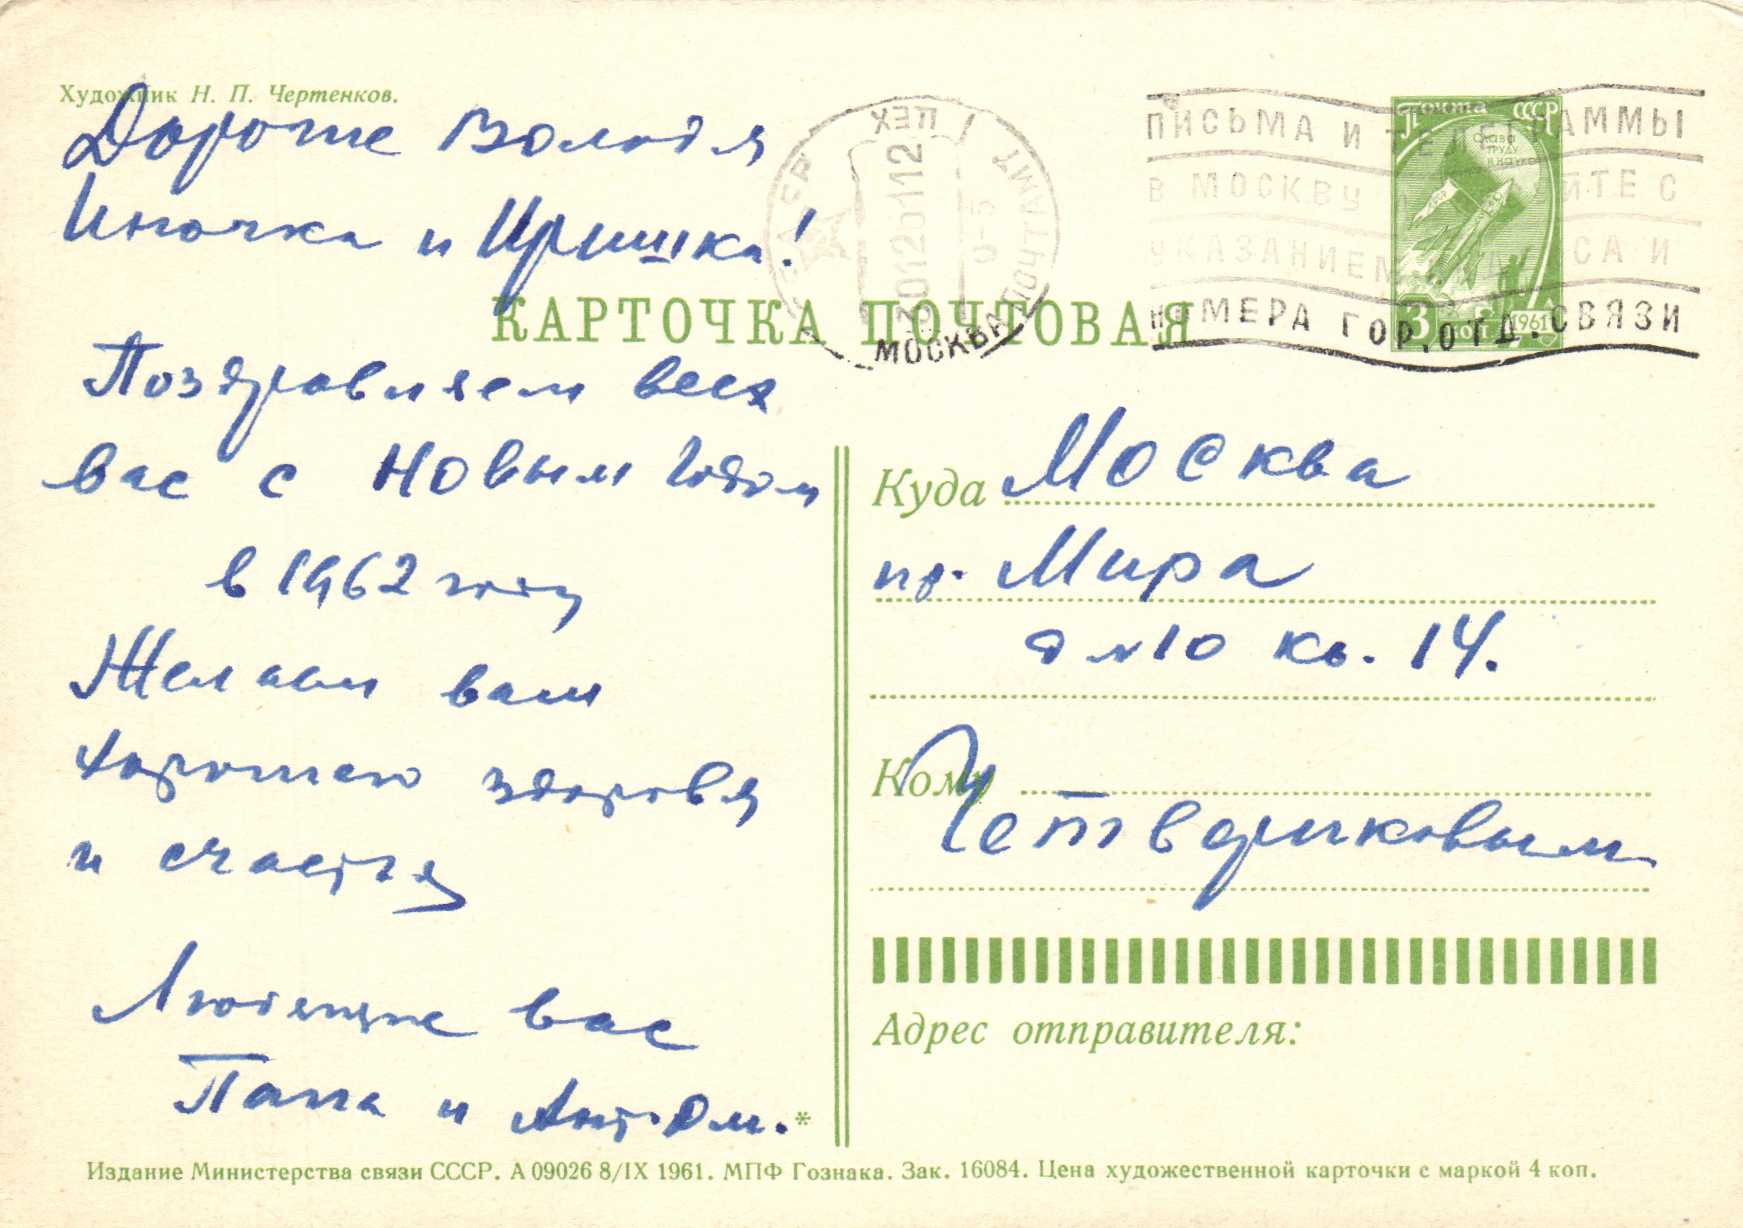 Художник Н. П. Чертенков.
Дорогие Володя
Иночка и Иришка!
КАРТОЧКА ПОЧТОВАЯ
Поздравляем всех
вас с Новым годом
в 1962 году
Желаем вам
хорошего здоровья
и счастья
Любящие вас
Папа и Ант. Дм.
*
ПИСЬМА И ТЕЛЕГРАММЫ
В МОСКВУ
УКАЗАНИЕМ АДРЕСА И
НОМЕРА ГОР. ОТД. СВЯЗИ
СССР
МОСКВА ПОЧТАМТ
ЦЕХ
Почта СССР
Слава
труду
и науке
3 коп 1961
Куда Москва
пр. Мира
д №10 кв. 14.
Кому
Четвериковым
Адрес отправителя:
Издание Министерства связи СССР. А 09026 8/IX 1961. МПФ Гознака. Зак. 16084. Цена художественной карточки с маркой 4 коп.